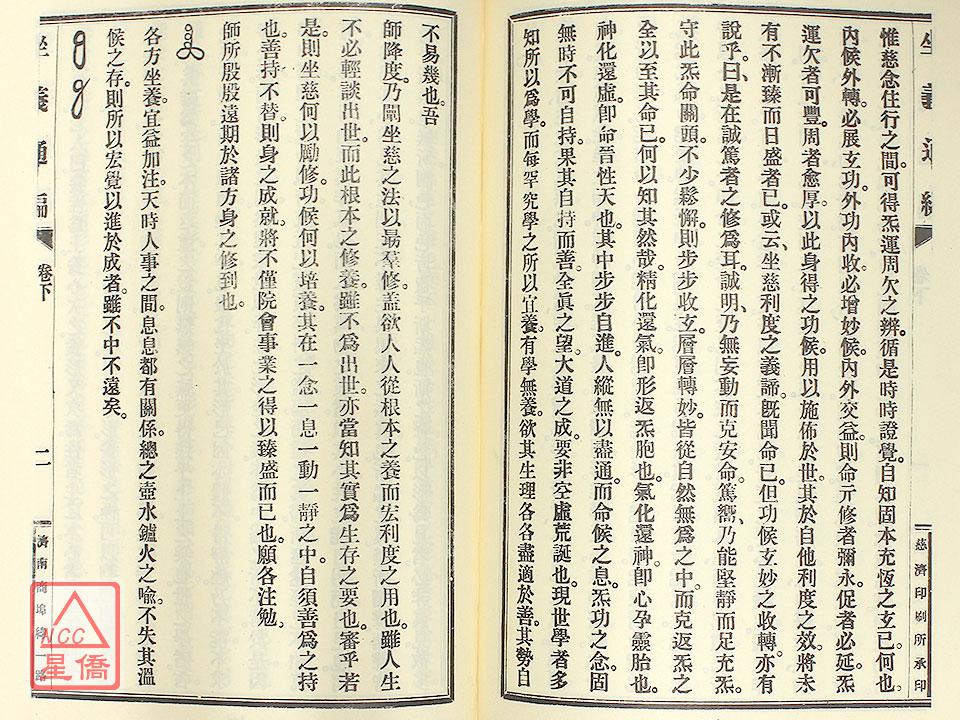 坐義通編
惟慈念住行之間。可得炁運周欠之辨。循是時時證覺。自知固本充恆之玄已。何也。
內候外轉。必展玄功。外功內收。必增妙候。內外交益。則命亓修者彌永。促者必延。炁
運欠者可豐。周者愈厚。以此身得之功候。用以施佈於世。其於自他利度之效。將未
有不漸臻而日盛者已。或云、坐慈利度之義諦。既聞命已。但功候玄妙之收轉。亦有
說乎。曰、是在誠篤者之修爲耳。誠明、乃無妄動而克安命。篤嚮、乃能堅靜而足充炁
守此炁命關頭。不少鬆懈。則步步收玄。層層轉妙。皆從自然無爲之中。而克返炁之
全以至其命已。何以知其然哉。精化還氣。卽形返炁胞也。氣化還神。卽心孕靈胎也。
神化還虛。卽命晉性天也。其中步步自進。人縱無以盡通。而命候之息。炁功之念。固
無時不可自持。果其自持而善。全眞之望。大道之成。要非空虛荒誕也。現世學者多
知所以爲學。而每罕究學之所以宜養。有學無養。欲其生理各各盡適於善。其勢自
慈濟印刷所承印
不易幾也。吾
師降度。乃闡坐慈之法。以最羣修。蓋欲人人從根本之養。而宏利度之用也。雖人生
不必輕談出世。而此根本之修養。雖不爲出世。亦當知其實爲生存之要也。審乎若
是。則坐慈何以勵修。功候何以培養。其在一念一息一動一靜之中。自須善爲之持
也。善持不替。則身之成就。將不僅院會事業之得以臻盛而已也。願各注勉。
師所殷殷遠期於諸方身之修到也。
各方坐養。宜益加注。天時人事之間。息息都有關係。總之壺水鑪火之喩。不失其溫
候之存。則所以宏覺以進於成者。雖不中不遠矣。
坐義通編
卷下
二
濟南商埠緯一路
NCC
星僑